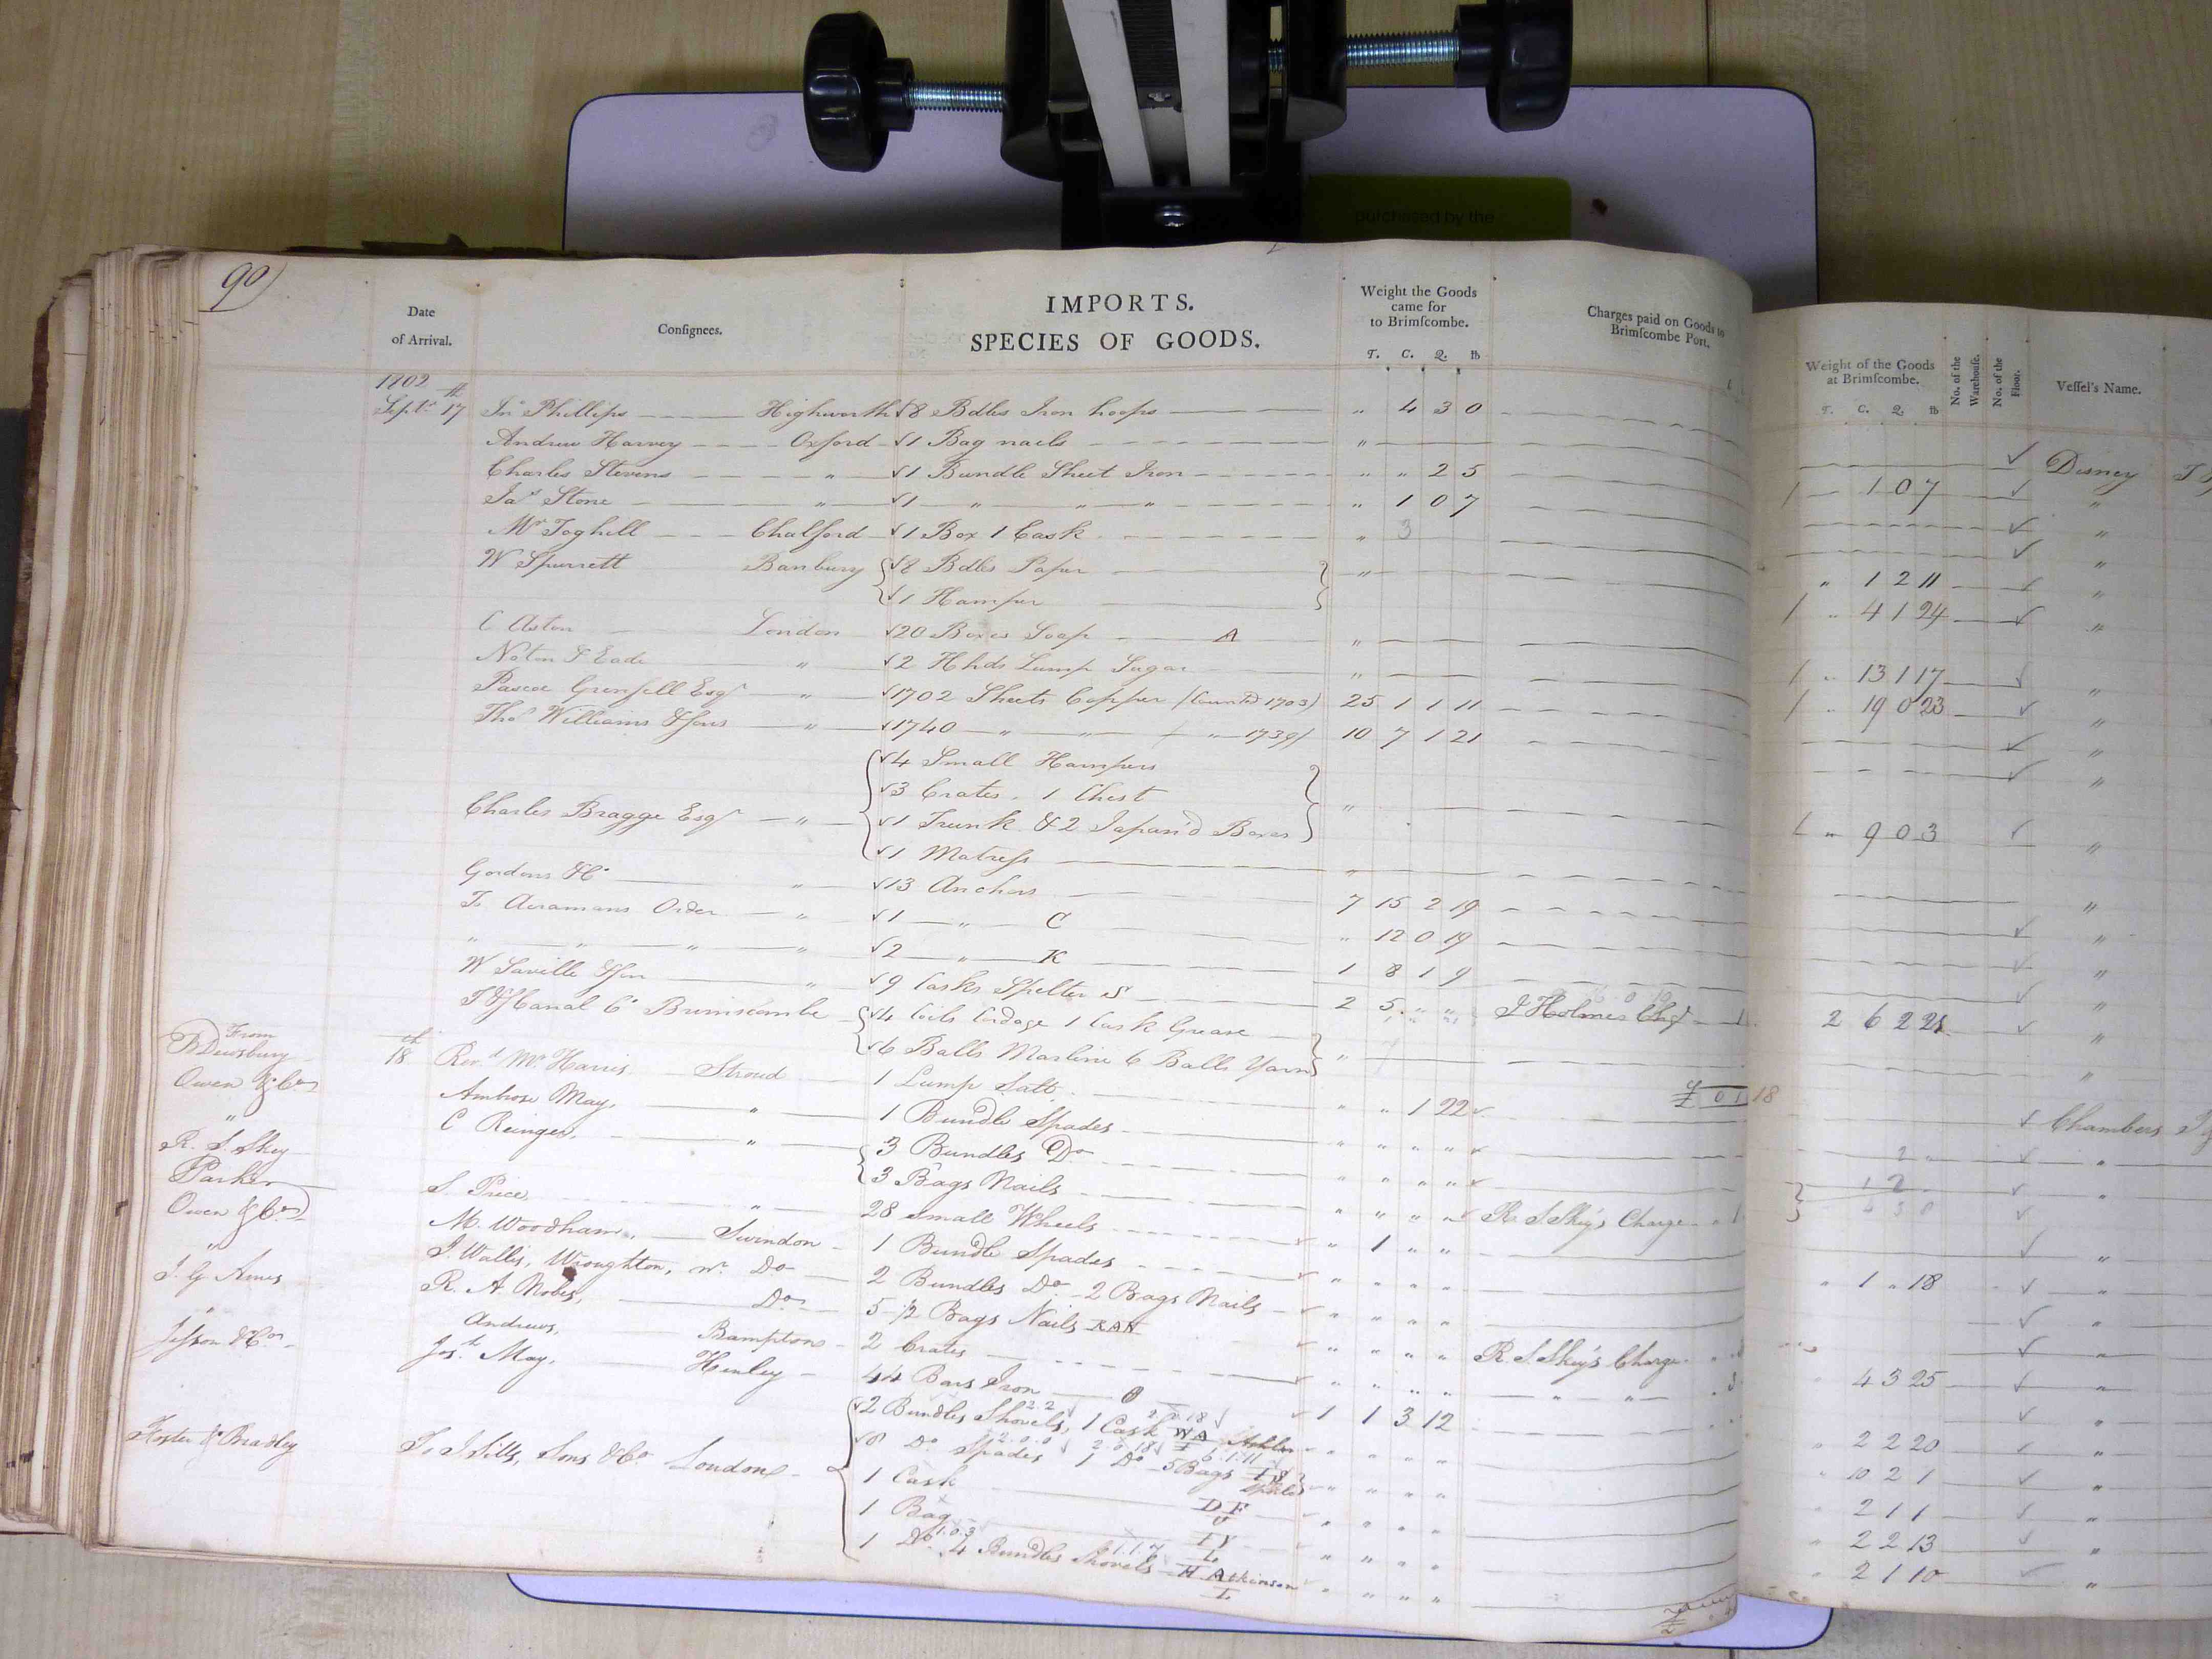 purchased by the
90)
Date of Arrival. Consignees. IMPORTS. SPECIES OF GOODS. Weight the Goods came for to Brimſcombe. T. C. Q. lb Charges paid on Goods to Brimſcombe Port.
1802
Septr 17th Jno Phillips Highworth 8 Bdles Iron hoops " 4 3 0
Andrew Harvey Oxford 1 Bag nails "
Charles Stevens " 1 Bundle Sheet Iron " " 2 5
Jas Stone " 1 " " " " 1 0 7
Mr Toghill Chalford 1 Box 1 Cask " 3
W Spurrett Banbury 8 Bdles Paper "
1 Hamper
C Aston London 20 Boxes Soap A "
Noton & Eade " 2 Hhds Lump Sugar "
Pascoe Grenfell Esqr " 1702 Sheets Copper (Counted 1703) 25 1 1 11
Thos Williams & Sons " 1740 " " ( " 1739) 10 7 1 21
4 Small Hampers
3 Crates. 1 Chest
Charles Bragge Esqr " 1 Trunk & 2 Japan'd Boxes "
1 Matress
Gordons & Co " 13 Anchors 7 15 2 19
To Acramans Order " 1 " C " 12 0 19
" " " " 2 " K 1 8 1 9
W Saville & Son " 9 Casks Spelter S 2 5 " " J Holmes Chgs
T & S Canal Co Brimscombe 4 Coils Cordage 1 Cask Grease
6 Balls Marline 6 Balls Yarn "
From
B Dewsbury 18th Revd Mr Harris Stroud 1 Lump Salt " " 1 22
Owen & Co Ambrose May, " 1 Bundle Spades " " " "
" C Reinger, " 3 Bundles Do " " " "
3 Bags Nails " " " "
R. S. Skey S. Price " 28 small Wheels " 1 " " R S Skey's Charge
Parker M. Woodham, Swindon 1 Bundle Spades " " " "
Owen & Co J. Wallis, Wroughton, nr Do 2 Bundles Do 2 Bags Nails " " " "
" R. A. Nobes, Do 5-½ Bags Nails RAN " " " " R. S. Skey's Charge
J. G. Ames Andrews, Bampton 2 Crates " " " " " "
" Josh May, Henley 44 Bars Iron O 1 1 3 12
Jesson & Co 2 Bundles Shovels, 1 Cask WA " " " "
8 Do Spades 1 Do 5 Bags " " " "
Foster & Bradley To J Sills, Sons & Co London 1 Cask DF " " " "
1 Bag IY " " " "
1 Do 4 Bundles Shovels H Atkinson " " " "
Weight of the Goods at Brimſcombe. T. C. Q. lb No. of the Warehouſe. No. of the Floor. Veſſel's Name.
Disney
1 0 7 "
"
"
" 1 2 11 "
" 4 1 24 "
" 13 1 17 "
" 19 0 23 "
"
"
" 9 0 3 "
"
"
"
"
2 6 2 21 "
"
Chambers
2 "
1 2 "
"
" 1 " 18 "
"
"
4 3 25 "
"
" 2 2 20 "
" 10 2 1 "
" 2 1 1 "
" 2 2 13 "
" 2 1 10 "